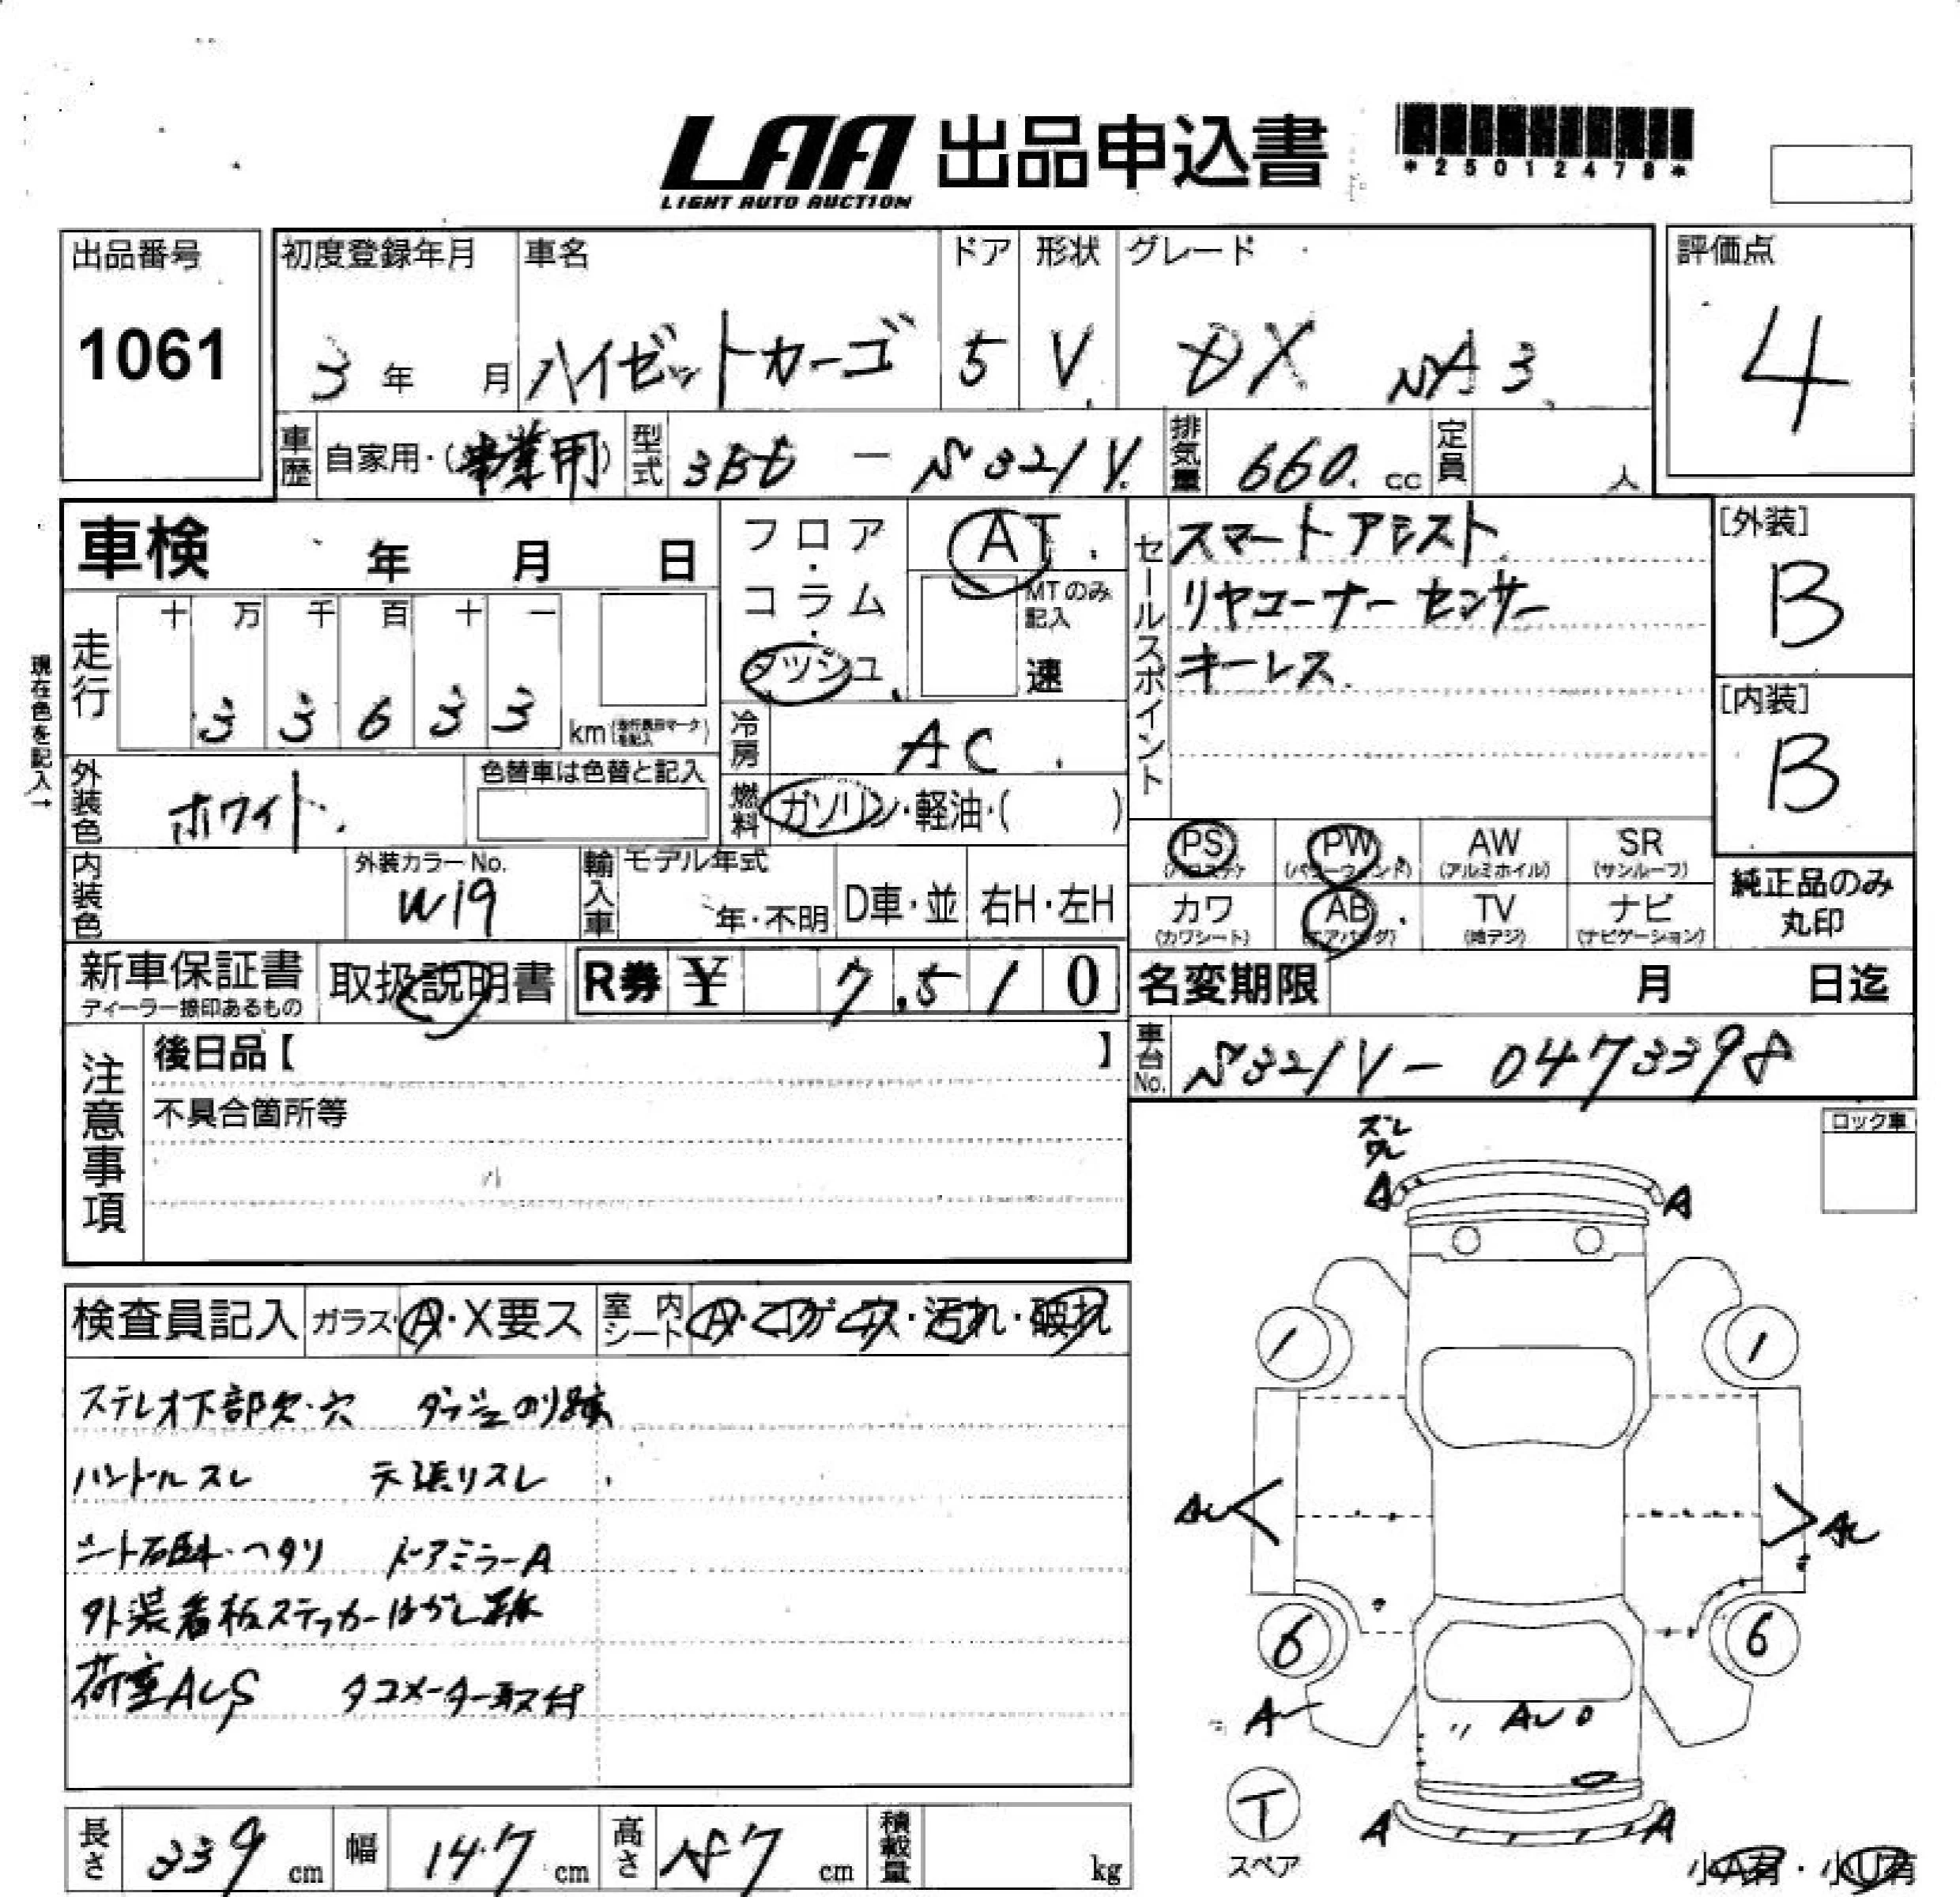 LAA 出品申込書
LIGHT AUTO AUCTION
*25012478*
出品番号
1061
初度登録年月 車名 ドア 形状 グレード
3年 月 ハイゼットカーゴ 5 V DX
評価点
4
車歴 自家用・(事業用) 型式 3BD - S321V 排気量 660. cc 定員 人
車検 年 月 日
フロア・コラム・ダッシュ
AT
MTのみ記入
速
セールスポイント
スマートアシスト
リヤコーナーセンサー
キーレス
[外装]
B
[内装]
B
現在色を記入→
走行 十 万 千 百 十 一
3 3 6 3 3 km
冷房 AC
燃料 ガソリン・軽油・( )
外装色 ホワイト
色替車は色替と記入
内装色
外装カラーNo.
W19
輸入車 モデル年式
年・不明 D車・並 右H・左H
PS PW AW SR
(パワーウィンド) (アルミホイル) (サンルーフ)
カワ AB TV ナビ
(カワシート) (エアバッグ) (地デジ) (ナビゲーション)
純正品のみ
丸印
新車保証書
ディーラー捺印あるもの
取扱説明書
R券 ¥ 7,510
名変期限 月 日迄
車台No. S321V-0473398
注意事項
後日品【 】
不具合箇所等
ロック車
検査員記入 ガラス・A・X要ス 室内シート A・コゲ・穴・汚れ・破れ
ステレオ下部欠・穴 ダッシュのり跡
ハンドルスレ 天張リスレ
シート ・ヘタリ ドアミラーA
外装看板ステッカーはがし跡
荷室AUS タコメーター取付
ズレ
ワレ
A A
1 1
AU AU
6 6
A
AU
T
スペア
A A
小A有・小U有
長さ 339 cm 幅 147 cm 高さ 187 cm 積載量 kg